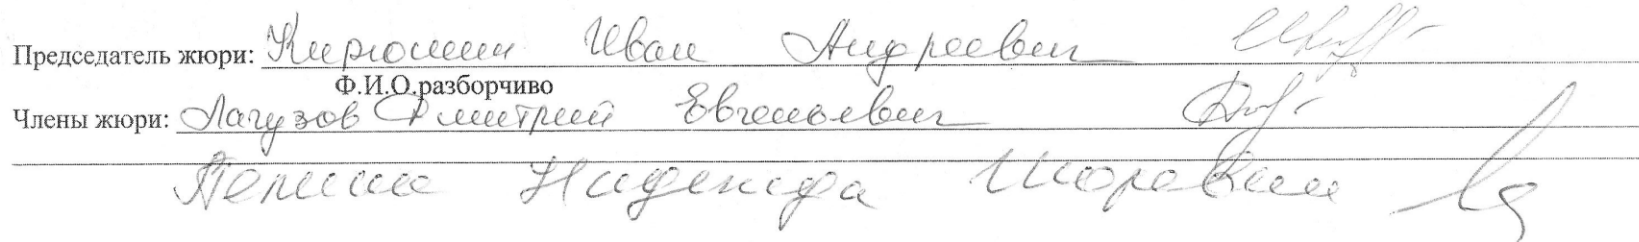 Председатель жюри: Кирюшин Иван Андреевич
Ф.И.О.разборчиво
Члены жюри: Лагузов Дмитрий Евгеньевич
Надежда Игоревна